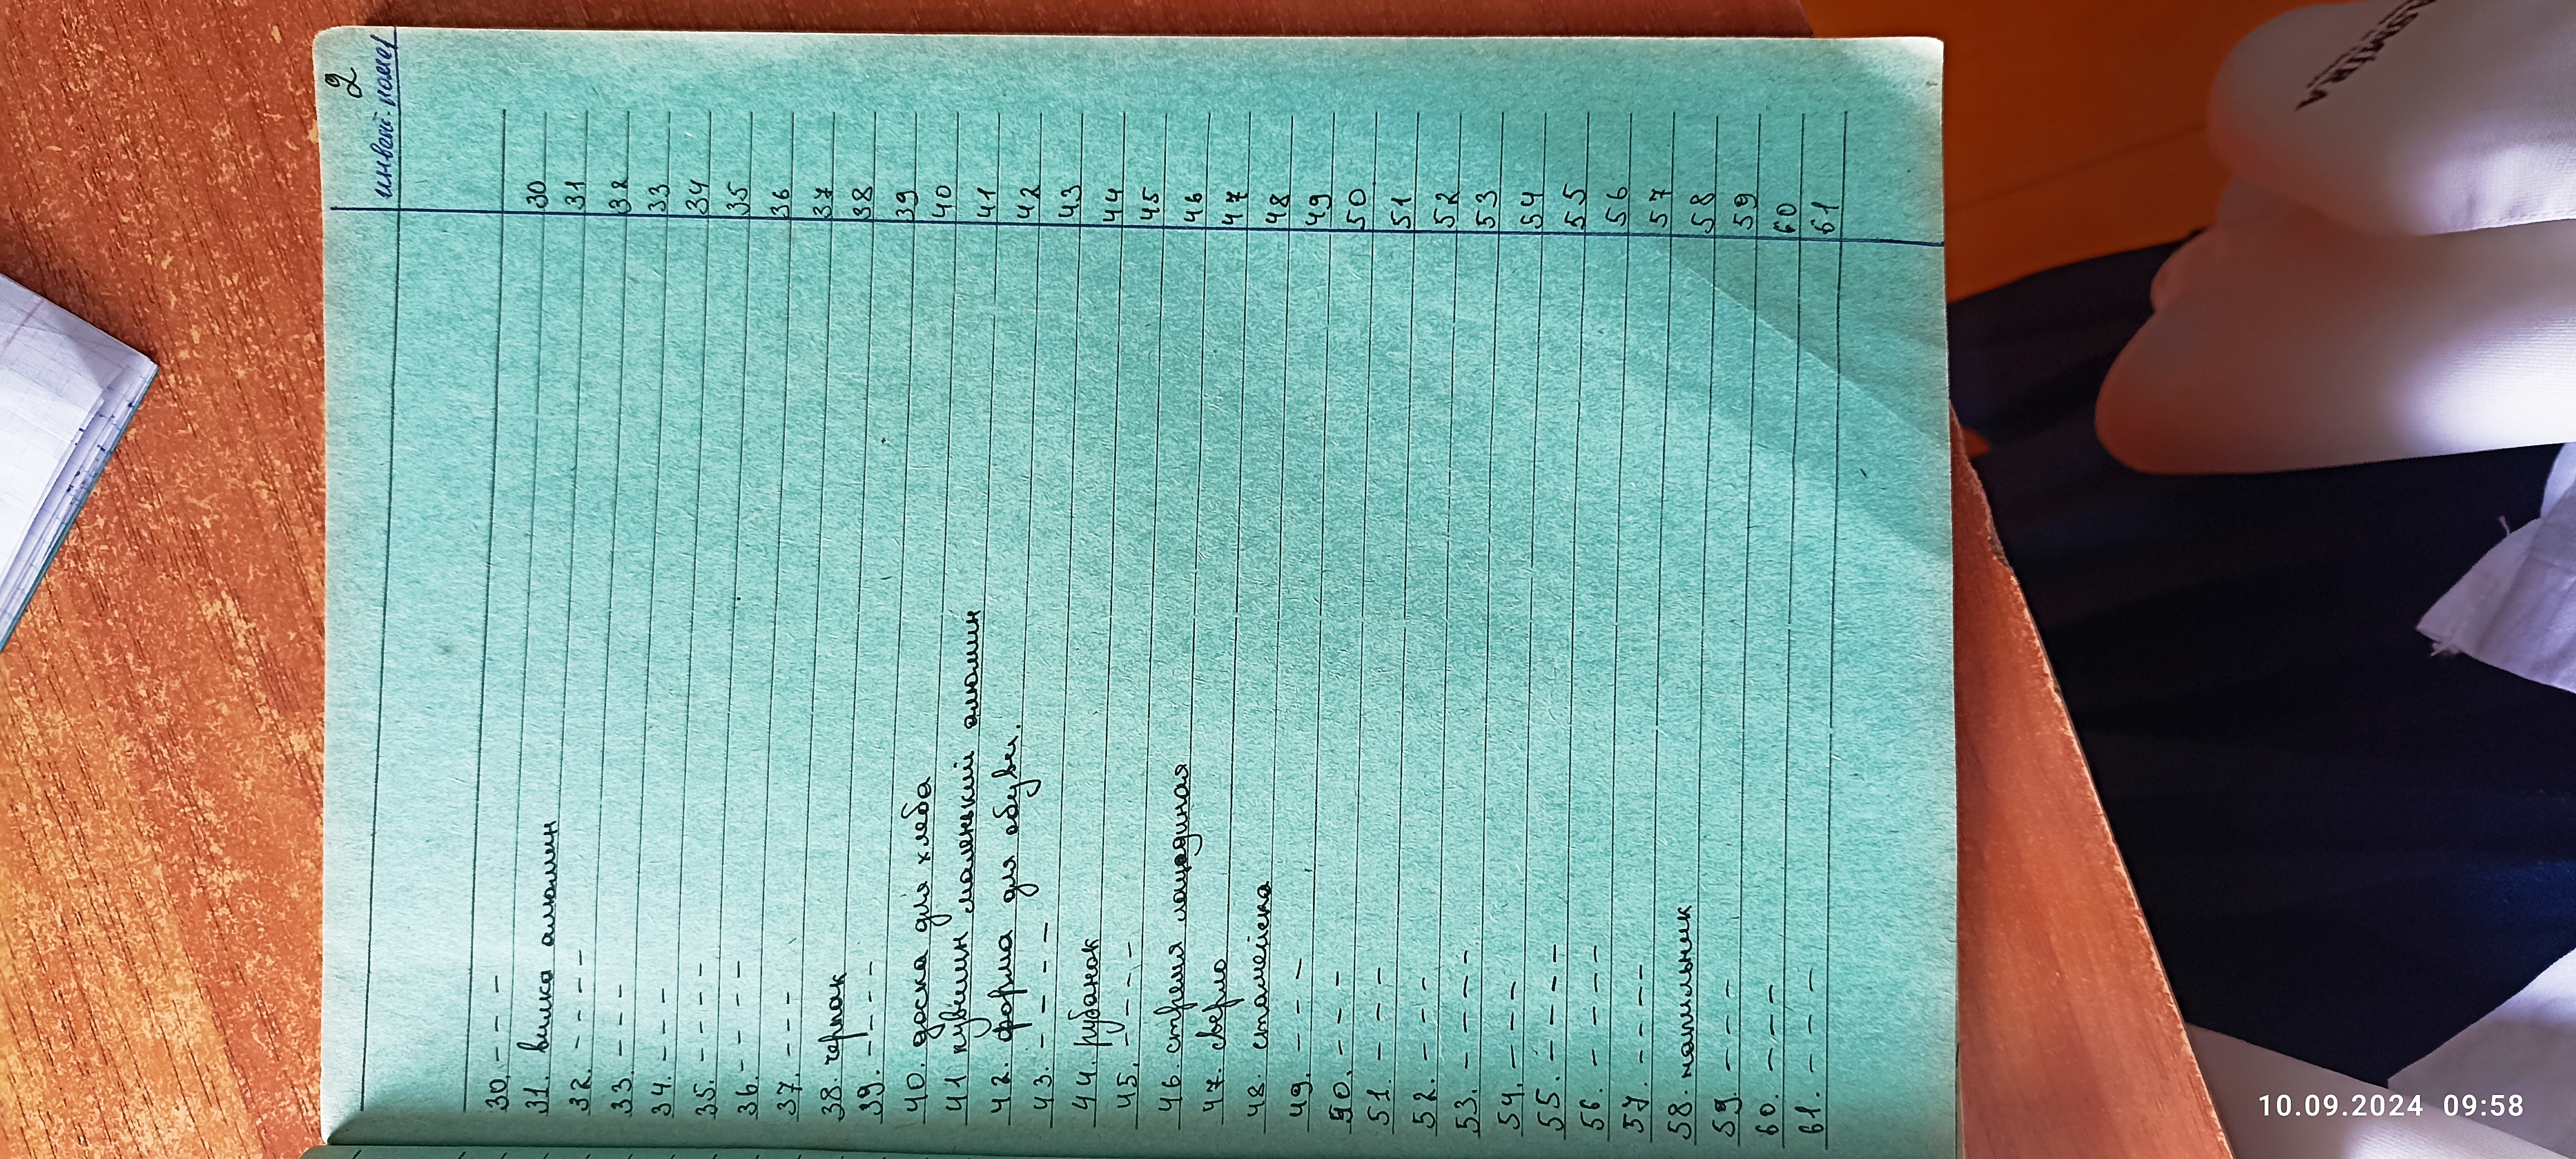 2
инвент. номер
30. - - - 30
31. вилка алюмин 31
32. - - - - 32
33. - - - - 33
34. - - - - 34
35. - - - - 35
36. - - - - 36
37. - - - - 37
38. черпак 38
39. - - - - 39
40. доска для хлеба 40
41 кувшин маленький алюмин 41
42. форма для обуви. 42
43. - - - - 43
44. рубанок 44
45. - - - - 45
46. стремя лошадиная 46
47. сверло 47
48. стамейска 48
49. - - - 49
50. - - - - 50
51. - - - - 51
52. - - - - 52
53. - - - - 53
54. - - - - 54
55. - - - - 55
56. - - - - 56
57. - - - - 57
58. напильник 58
59. - - - - 59
60. - - - - 60
61. - - - - 61
10.09.2024 09:58